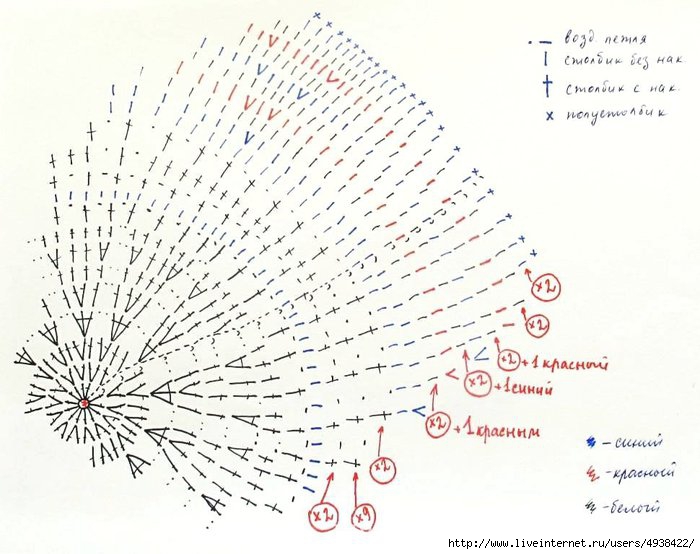 · – возд. петля
столбик без нак.
столбик с нак.
x полустолбик
x2
x2
x2 +1 красный
x2 +1 синий
x2 +1 красным
x2
x2
x9
– синий
– красный
– белый
http://www.liveinternet.ru/users/4938422/